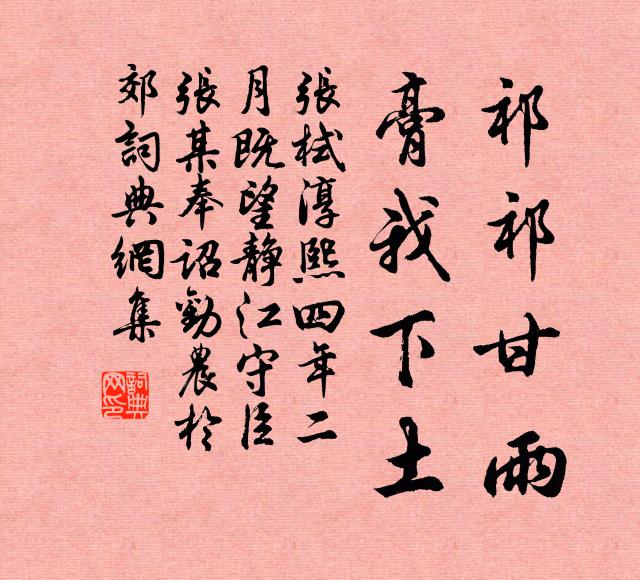 祁祁甘雨
膏我下土
張栻淳熙四年二
月既望靜江守臣
張某奉詔勸農於
郊詞典網集
詞典
网印